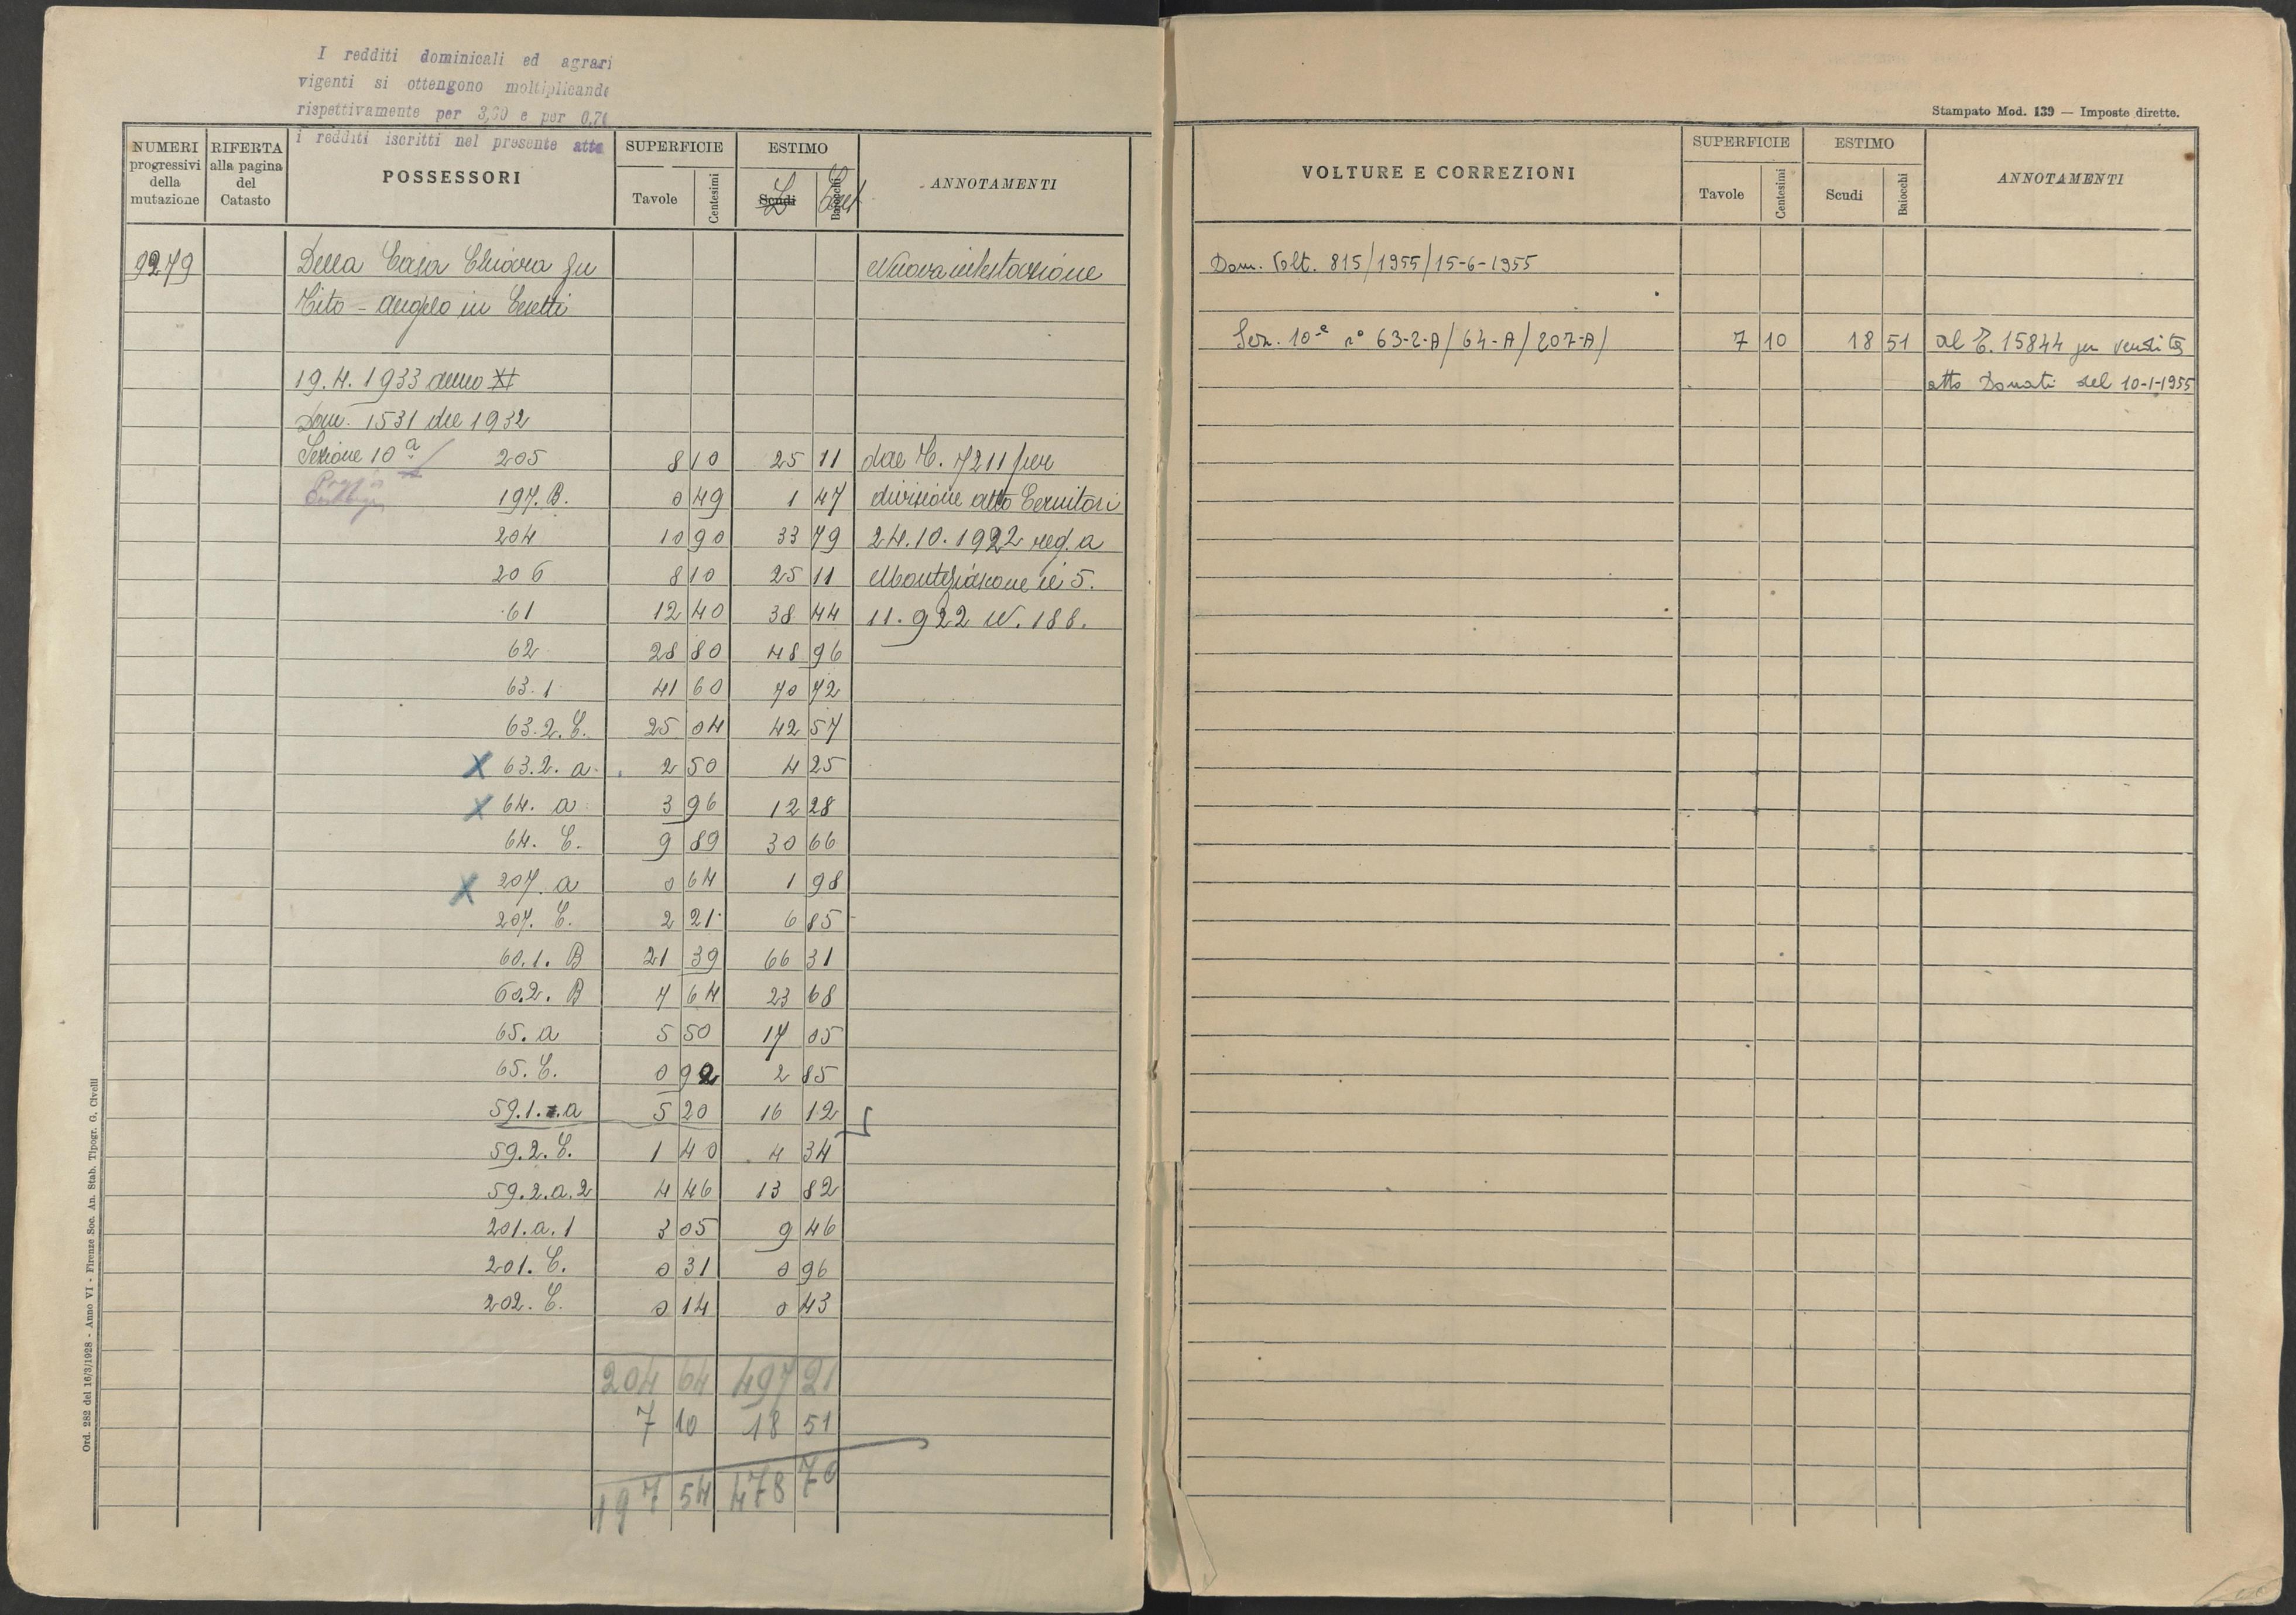 I redditi dominicali ed agrari
vigenti si ottengono moltiplicande
rispettivamente per 3,60 e per 0,70
i redditi iscritti nel presente atto
NUMERI progressivi della mutazione | RIFERTA alla pagina del Catasto | POSSESSORI | SUPERFICIE Tavole Centesimi | ESTIMO Scudi Baiocchi L Cent | ANNOTAMENTI
9279 Della Casa Chiara fu Nuova intestazione
Tito - Angelo in Ceretti
19.4.1933 anno XI
Dom. 1531 del 1932
Sezione 10ª 205 8 10 25 11 dal C. 7211 per
197.B. 0 49 1 47 divisione atto Cernitori
204 10 90 33 79 24.10.1922 reg. a
206 8 10 25 11 Montefiascone il 5.
61 12 40 38 44 11.922 N. 188.
62 28 80 48 96
63.1 41 60 70 72
63.2.C. 25 04 42 57
X 63.2.a 2 50 4 25
X 64. a 3 96 12 28
64. C. 9 89 30 66
X 207. a 0 64 1 98
207. C. 2 21 6 85
60.1. B 21 39 66 31
60.2. B 7 64 23 68
65. a 5 50 17 05
65. C. 0 92 2 85
59.1. a 5 20 16 12
59.2. C. 1 40 4 34
59.2.a.2 4 46 13 82
201.a.1 3 05 9 46
201. C. 0 31 0 96
202. C. 0 14 0 43
204 64 497 21
7 10 18 51
197 54 478 70
Ord. 282 del 16/3/1928 - Anno VI - Firenze Soc. An. Stab. Tipogr. G. Civelli
Stampato Mod. 139 — Imposte dirette.
VOLTURE E CORREZIONI | SUPERFICIE Tavole Centesimi | ESTIMO Scudi Baiocchi | ANNOTAMENTI
Dom. Volt. 815/1955/15-6-1955
Sez. 10ª nº 63-2-A/64-A/207-A/ 7 10 18 51 al C. 15844 per vendita
atto Donati del 10-1-1955